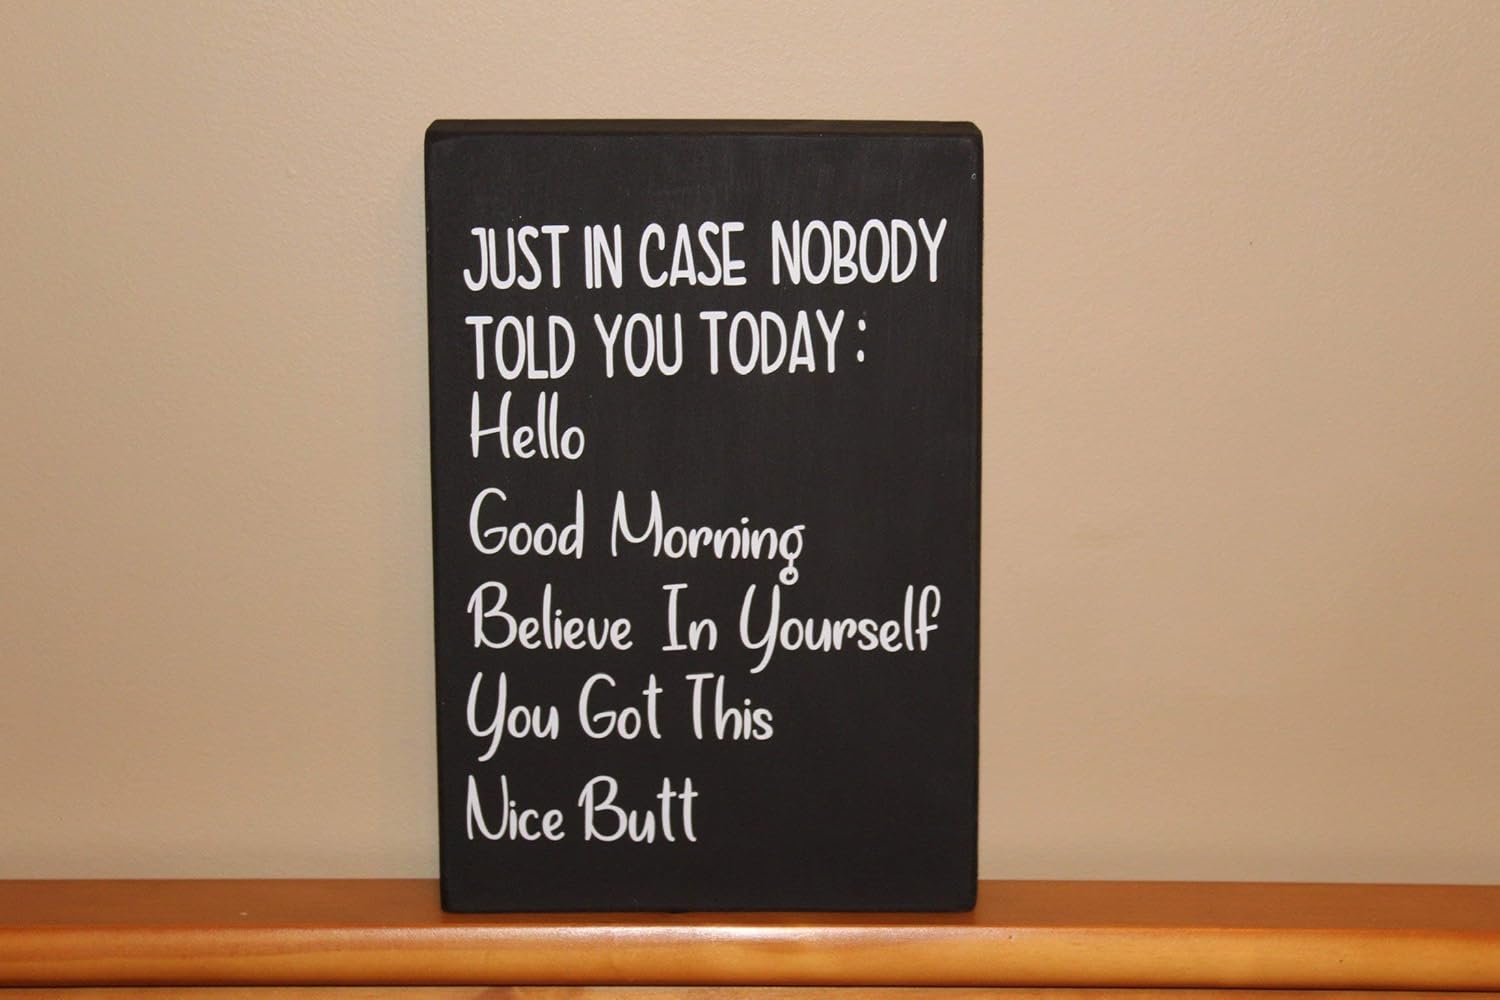 JUST IN CASE NOBODY
TOLD YOU TODAY:
Hello
Good Morning
Believe In Yourself
You Got This
Nice Butt